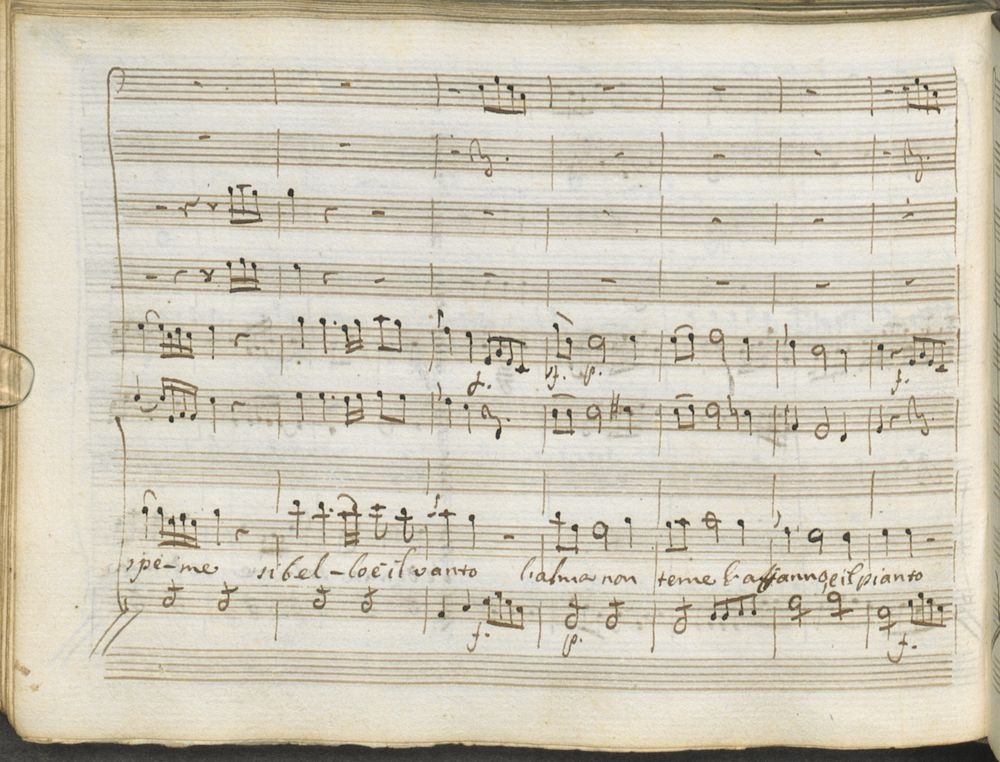 f.
sf. p.
f.
spe-me si bel-lo è il vanto l'alma non teme l'affanno, e il pianto
f.
p.
f.